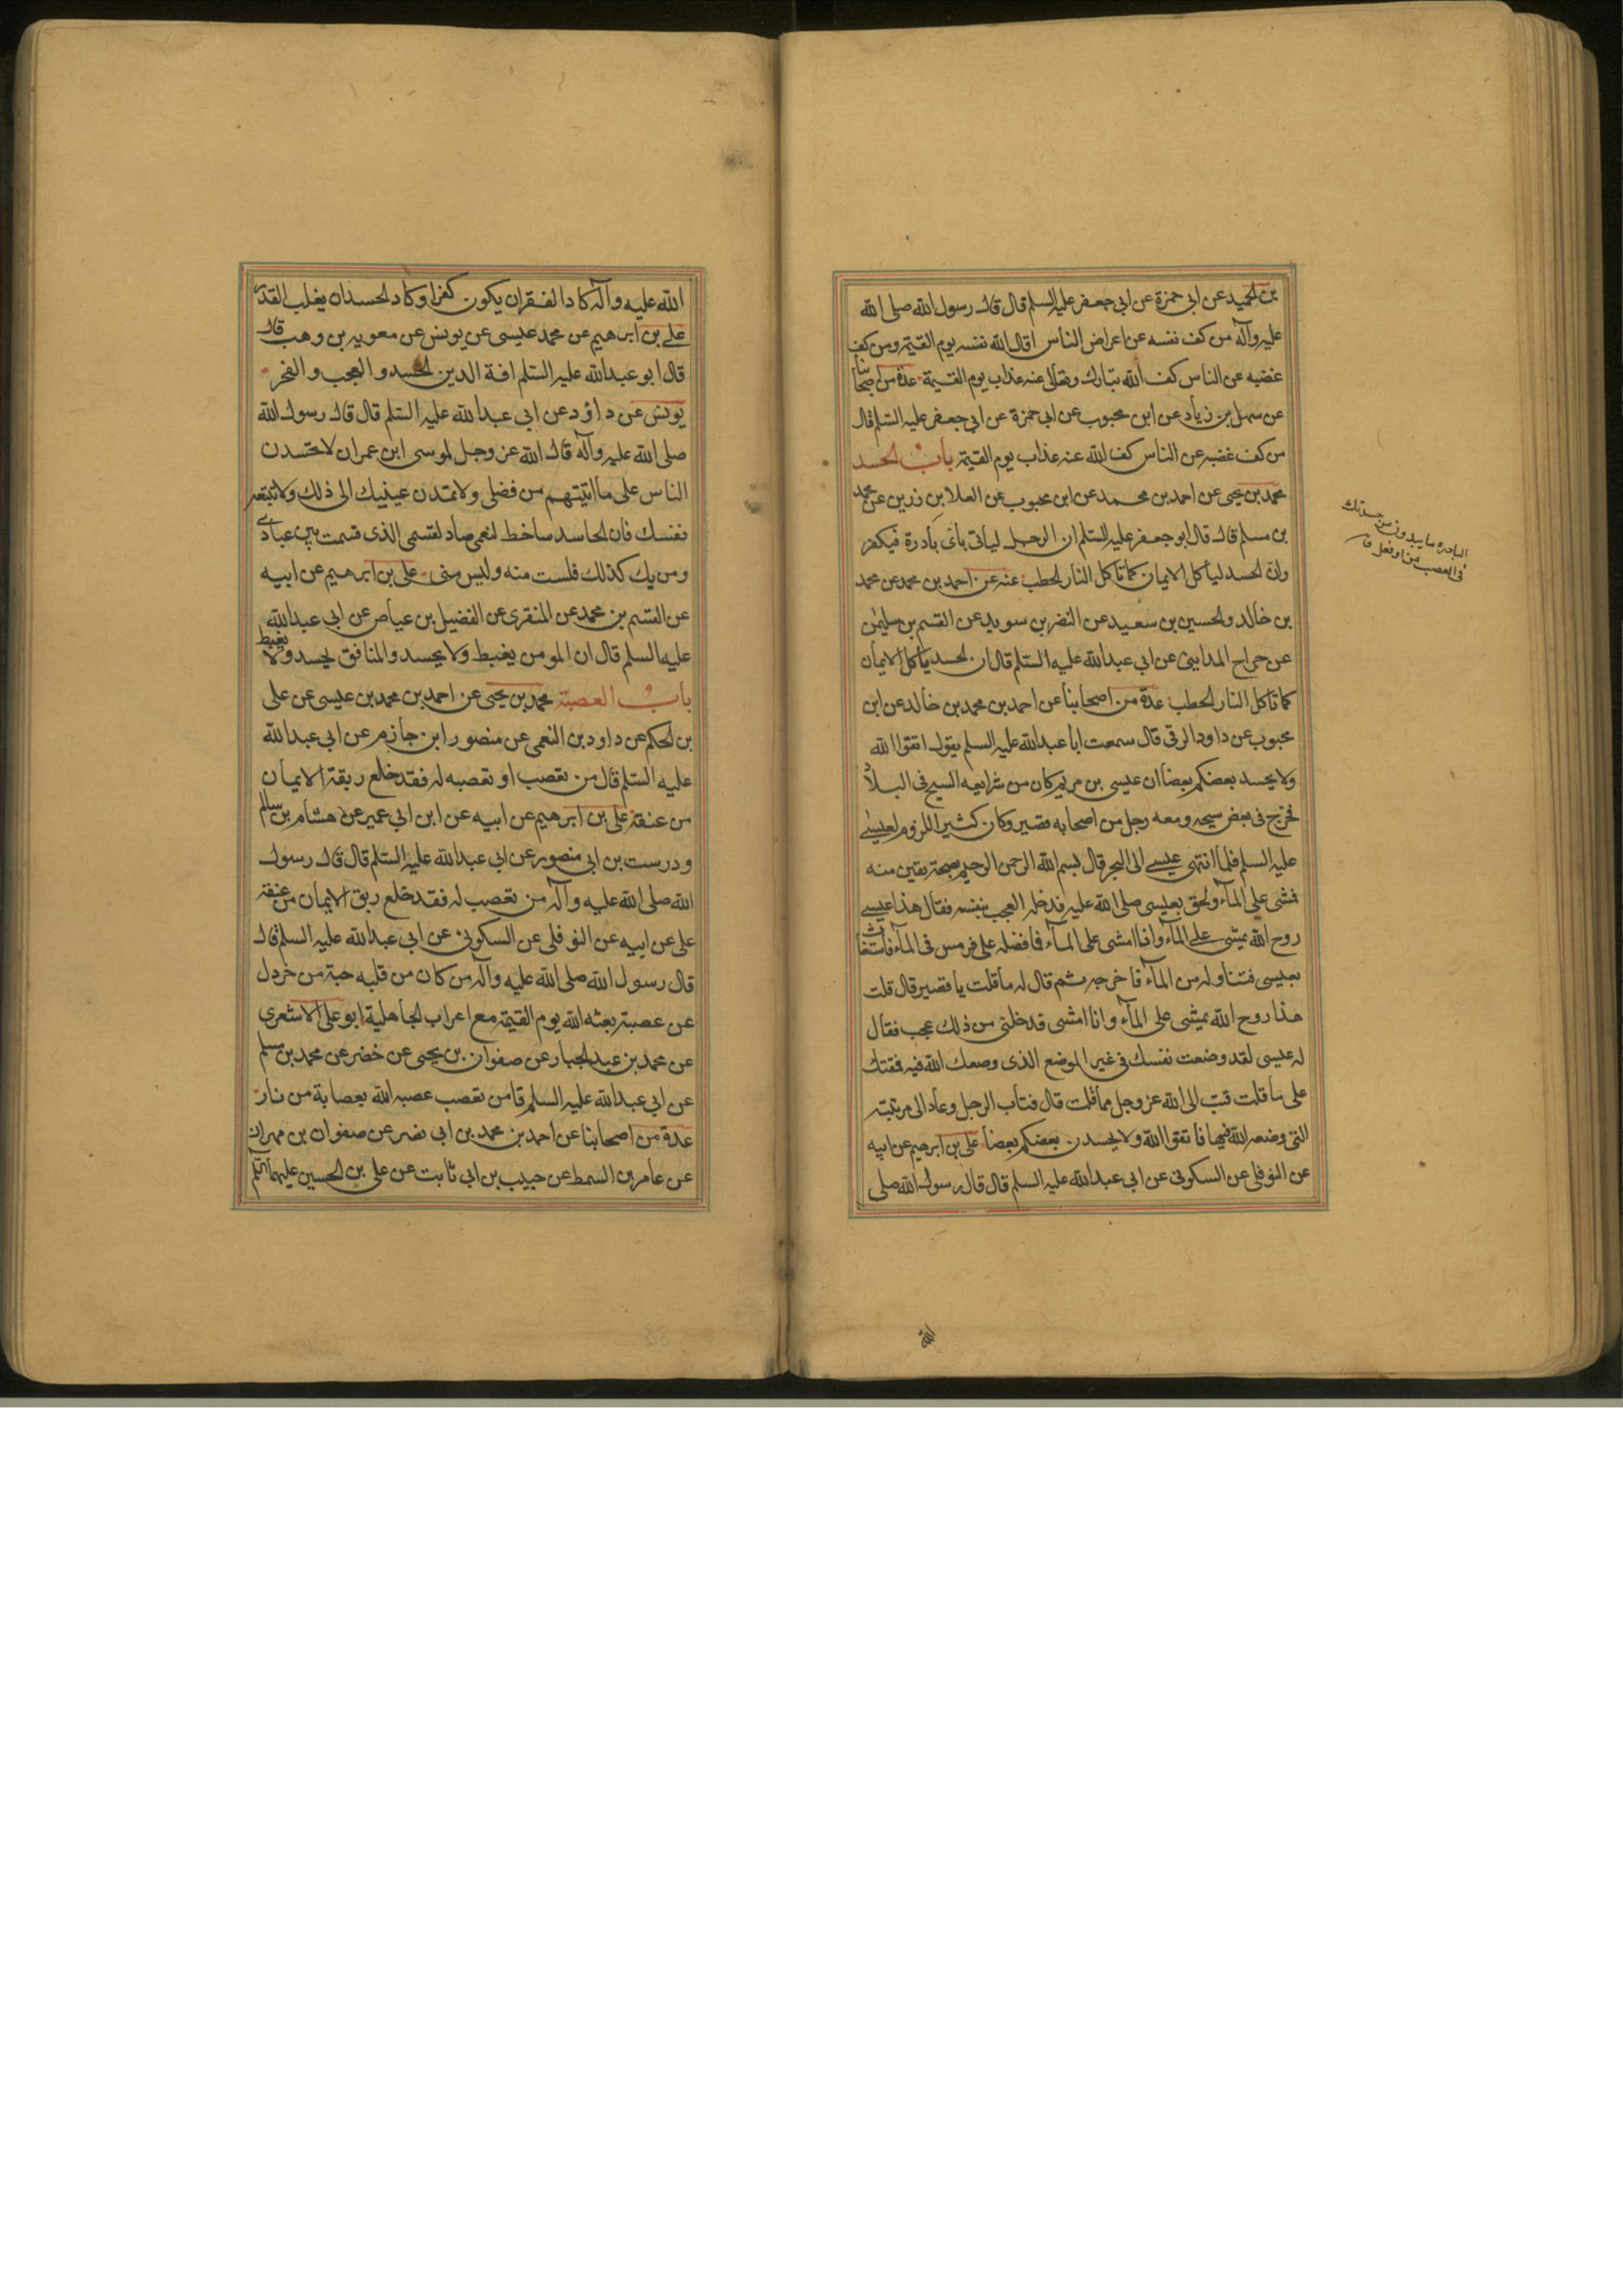 بن لحميد عن ابى حمزة عن ابى جعفر عليه السلم قال قال رسول الله صلى الله
عليه وآله من كف نفسه عن اعراض الناس اقال الله نفسه يوم القيمة ومن كف
غضبه عن الناس كف الله تبارك وتعالى عنه عذاب يوم القيمة عدة من اصحابنا
عن سهل بن زياد عن ابن محبوب عن ابى حمزة عن ابى جعفر عليه السلم قال
من كف غضبه عن الناس كف الله عنه عذاب يوم القيمة باب الحسد
محمد بن يحيى عن احمد بن محمد عن ابن محبوب عن العلا بن رزين عن محمد
بن مسلم قال قال ابو جعفر عليه السلم ان الرجل لياتى باى بادرة فيكفر
وان الحسد لياكل الايمان كما تاكل النار الحطب عنه عن احمد بن محمد عن محمد
بن خالد والحسين بن سعيد عن النضر بن سويد عن القسم بن سليمن
عن جراح المداينى عن ابى عبد الله عليه السلم قال ان الحسد ياكل الايمان
كما تاكل النار الحطب عدة من اصحابنا عن احمد بن محمد بن خالد عن ابن
محبوب عن داود الرقى قال سمعت ابا عبد الله عليه السلم يقول اتقوا الله
ولا يحسد بعضكم بعضا ان عيسى بن مريم كان من شرايعه السيح فى البلاد
فخرج فى بعض سيحه ومعه رجل من اصحابه قصير وكان كثير اللزوم لعيسى
عليه السلم فلما انتهى عيسى الى البحر قال بسم الله الرحمن الرحيم بصحة يقين منه
فمشى على المآء ولحق بعيسى صلى الله عليه فدخله العجب بنفسه فقال هذا عيسى
روح الله يمشى على المآء وانا امشى على المآء فما فضله على فرمس فى المآء فاستغاث
بعيسى فتناوله من المآء فاخرجه ثم قال له ما قلت يا قصير قال قلت
هذا روح الله يمشى على المآء وانا امشى فدخلنى من ذلك عجب فقال
له عيسى لقد وضعت نفسك فى غير الموضع الذى وضعك الله فيه فمقتك
على ما قلت فتب الى الله عز وجل مما قلت قال فتاب الرجل وعاد الى مرتبته
التى وضعه الله فيها فاتقوا الله ولا يحسدن بعضكم بعضا على بن ابرهيم عن ابيه
عن النوفلى عن السكونى عن ابى عبد الله عليه السلم قال قال رسول الله صلى
البادره ما يبدو من حدتك
فى الغضب من او فعل
الله
الله عليه وآله كاد الفقر ان يكون كفرا وكاد الحسد ان يغلب القدر
على بن ابرهيم عن محمد عيسى عن يونس عن معويه بن وهب قال
قال ابو عبد الله عليه السلم افة الدين الحسد والعجب والفخر
يونس عن داود عن ابى عبد الله عليه السلم قال قال رسول الله
صلى الله عليه وآله قال الله عز وجل لموسى ابن عمران لا تحسدن
الناس على ما اتيتهم من فضلى ولا تمدن عينيك الى ذلك ولا تتبعه
نفسك فان الحاسد ساخط لنعمى صاد لقسمى الذى قسمت بين عبادى
ومن يك كذلك فلست منه وليس منى على بن ابرهيم عن ابيه
عن القسم بن محمد عن المنقرى عن الفضيل بن عياض عن ابى عبد الله
عليه السلم قال ان المومن يغبط ولا يحسد والمنافق يحسد ولا يغبط
باب العصبة محمد بن يحيى عن احمد بن محمد بن عيسى عن على
بن الحكم عن داود بن النعمى عن منصور ابن حازم عن ابى عبد الله
عليه السلم قال من تعصب او تعصبه له فقد خلع ربقة الايمان
من عنقه على بن ابرهيم عن ابيه عن ابن ابى عمير عن هشام بن سالم
ودرست بن ابى منصور عن ابى عبد الله عليه السلم قال قال رسول
الله صلى الله عليه وآله من تعصب له فقد خلع ربق الايمان من عنقه
على عن ابيه عن النوفلى عن السكونى عن ابى عبد الله عليه السلم قال
قال رسول الله صلى الله عليه وآله من كان من قلبه حبة من خردل
عن عصبة بعثه الله يوم القيمة مع اعراب الجاهلية ابو على الاشعرى
عن محمد بن عبد الجبار عن صفوان بن يحيى عن خضر عن محمد بن مسلم
عن ابى عبد الله عليه السلم قا من تعصب عصبه الله بعصابة من نار
عدة من اصحابنا عن احمد بن محمد بن ابى نصر عن صفوان بن مهران
عن عامر بن السمط عن حبيب بن ابى ثابت عن على بن الحسين عليهما السلم